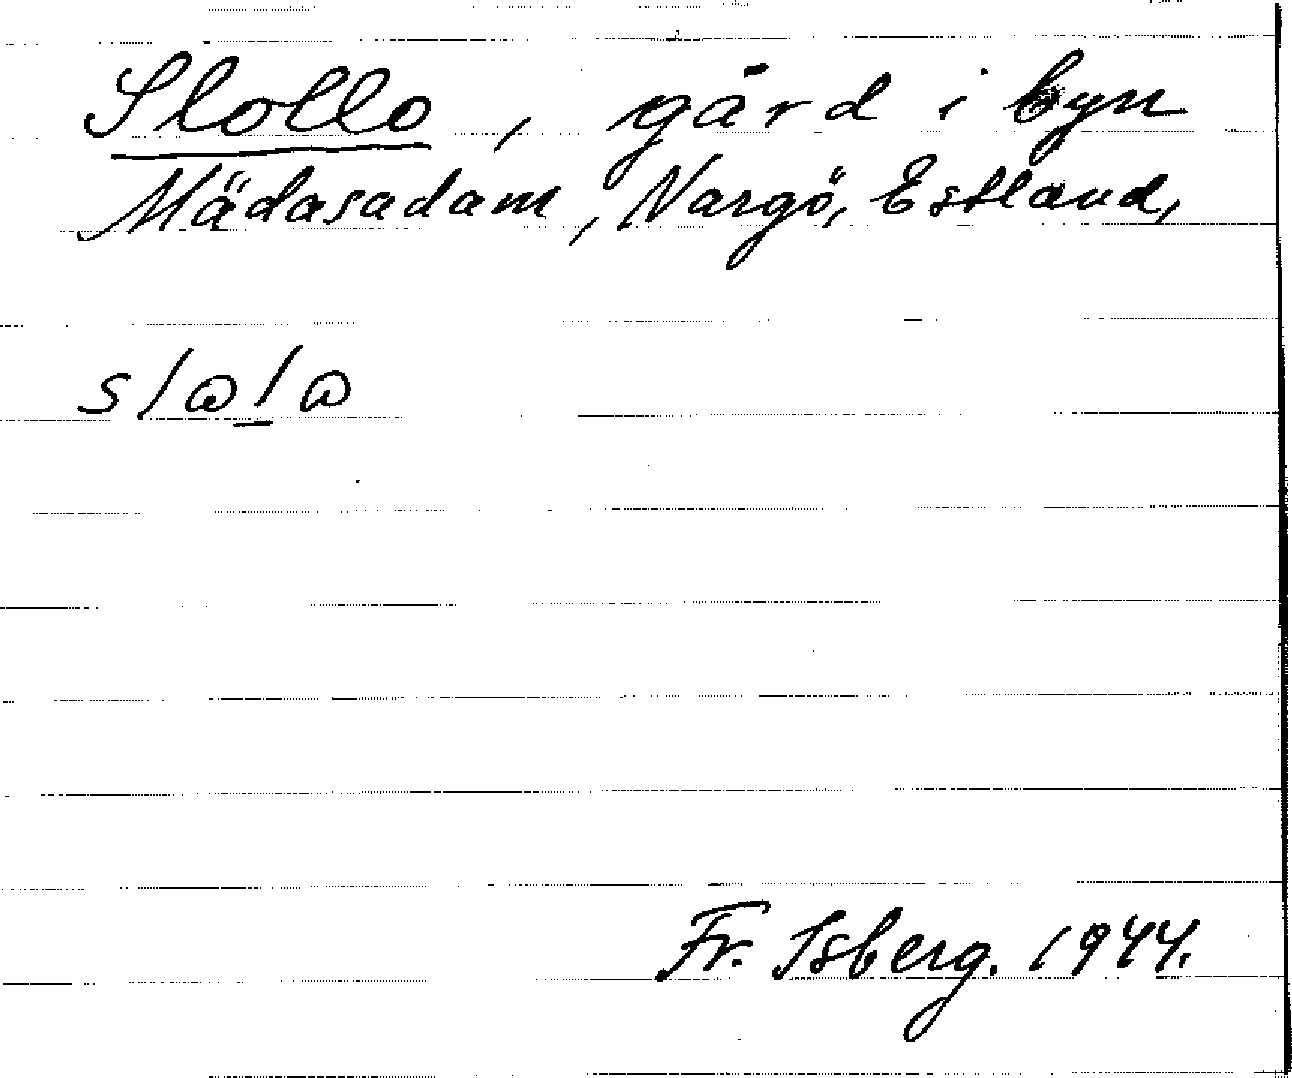 Slollo, gård i byn
Mädasadam, Nargö, Estland,
slɷl̲ɷ
Fr. Isberg. 1944.